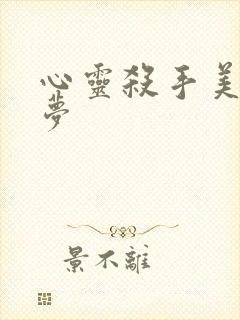 心靈殺手美
夢
景不離